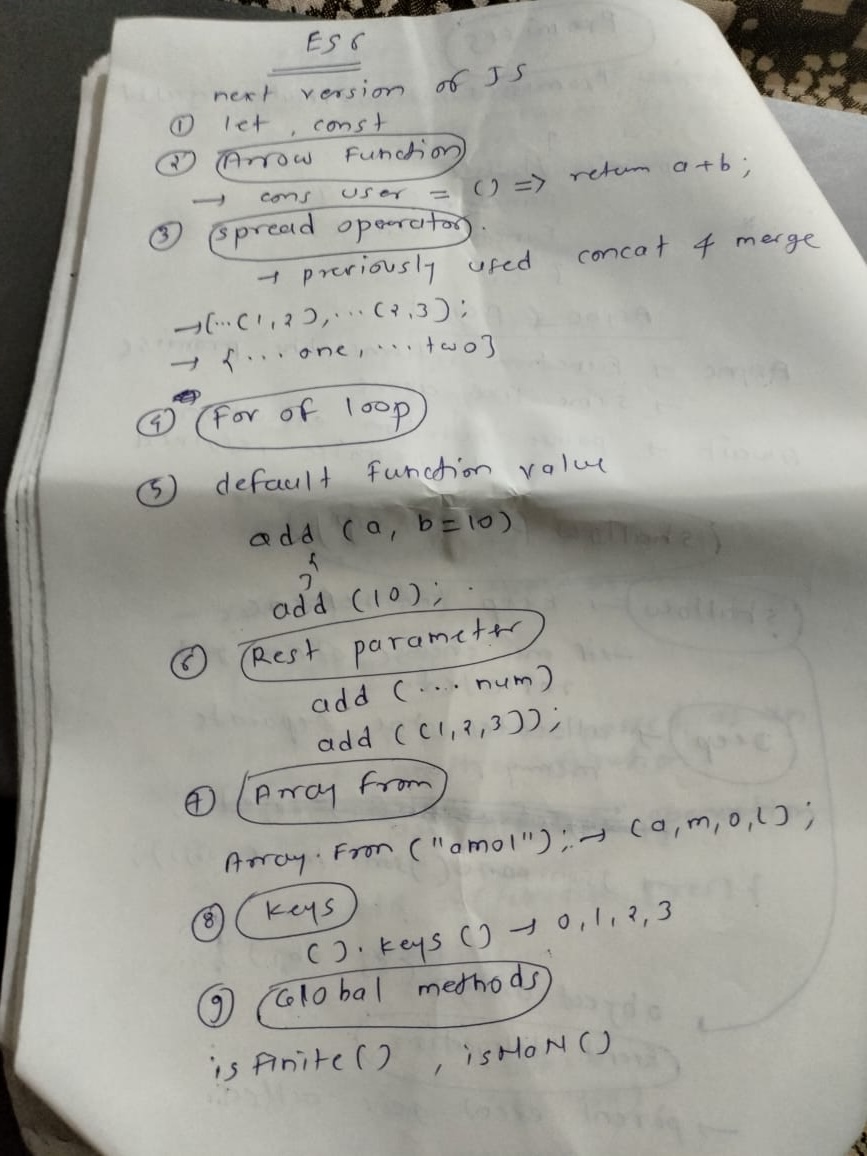 ES6
next version of JS
① let , const
② Arrow Function
→ cons user = () => return a+b;
③ spread operator.
→ previously used concat & merge
→ [...[1,2], ...[2,3];
→ {...one, ...two}
④ For of loop
⑤ default function value
add (a, b=10)
{
}
add (10);
⑥ Rest parameter
add (...num)
add ([1,2,3]);
⑦ Array from
Array.From ("amol"); → [a,m,o,l];
⑧ keys
[].keys() → 0,1,2,3
⑨ Global methods
isFinite() , isNaN()